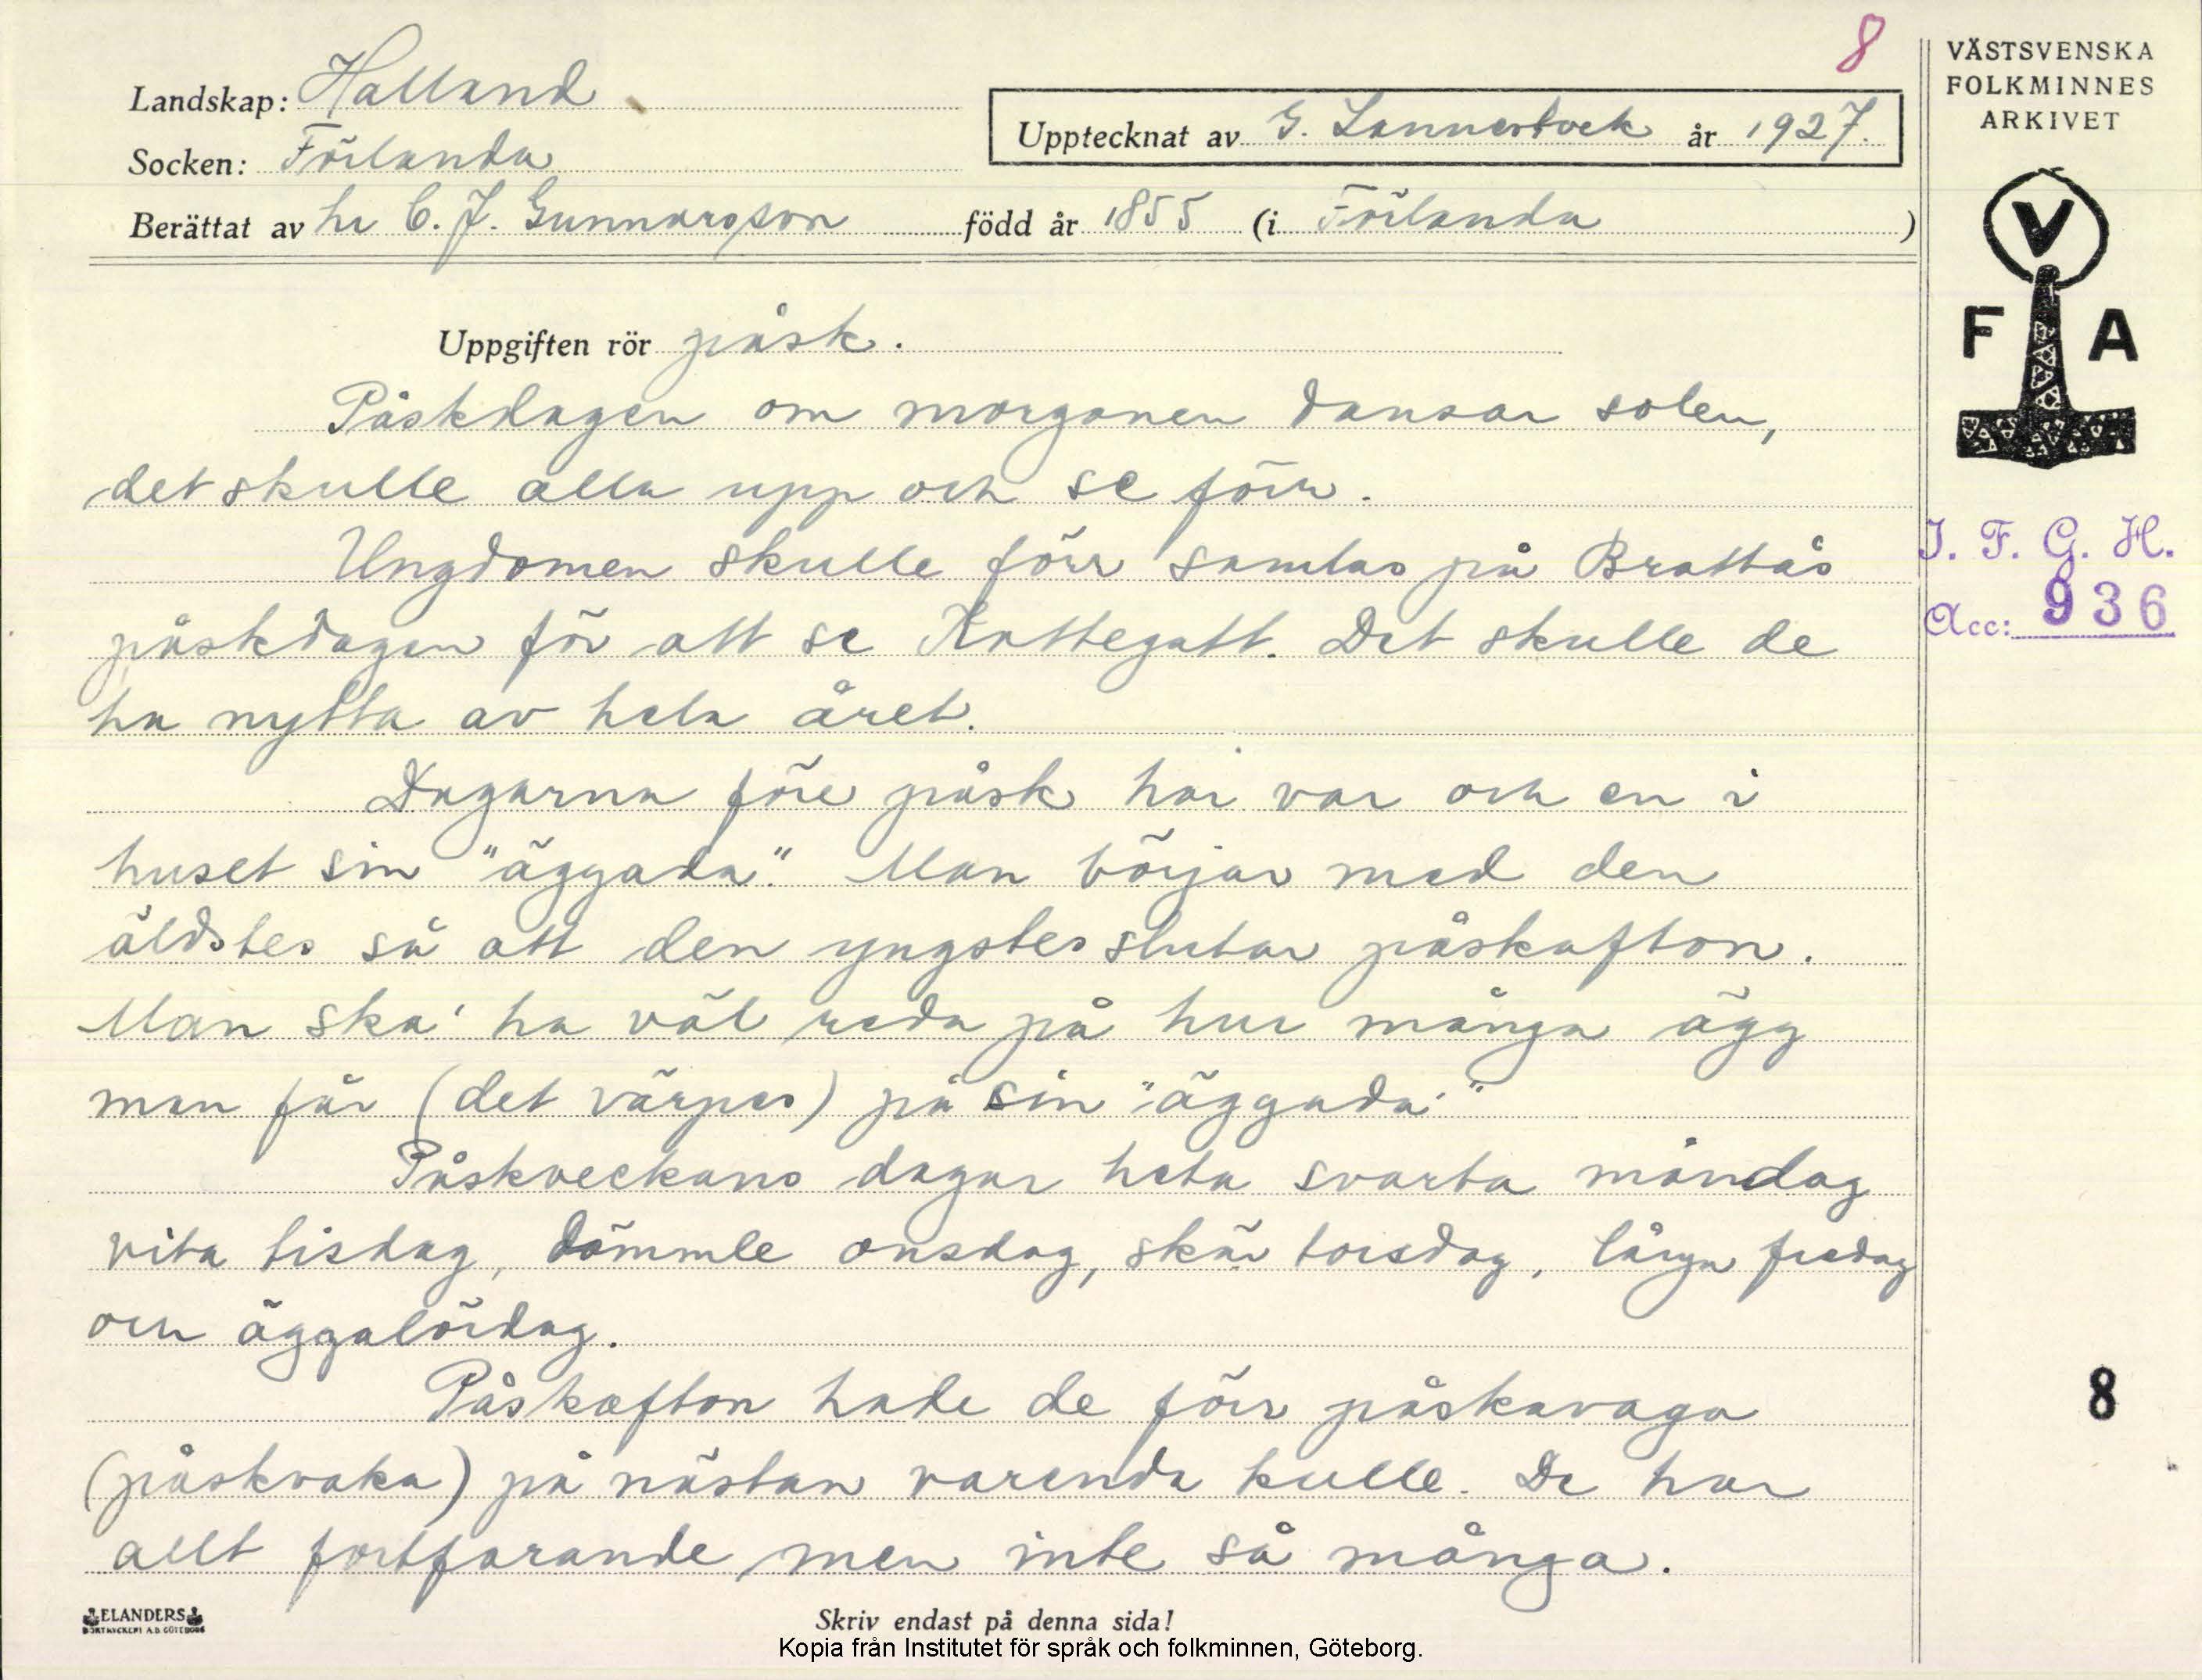 8
Landskap: Halland
Socken: Förlanda
Upptecknat av G. Lannerbeck år 1927.
Berättat av hr C. J. Gunnarsson född år 1855 (i Förlanda)
VÄSTSVENSKA
FOLKMINNES
ARKIVET
V
F A
I. F. G. H.
Acc: 936
Uppgiften rör påsk.
Påskdagen om morgonen dansar solen,
det skulle alla upp och se förr.
Ungdomen skulle förr samlas på Brattås
påskdagen för att se Kattegatt. Det skulle de
ha nytta av hela året.
Dagarna före påsk har var och en i
huset sin "äggada". Man börjar med den
äldstes så att den yngstes slutar påskafton.
Man ska' ha väl reda på hur många ägg
man får (det värpes) på sin "äggada."
Påskveckans dagar heta svarta måndag
vita tisdag, dömmle onsdag, skär torsdag, långa fredag
och äggalördag.
Påskafton hade de förr påskavaga
(påskvaka) på nästan varenda kulle. De har
allt fortfarande men inte så många.
8
ELANDERS
BOKTRYCKERI A.B. GÖTEBORG
Skriv endast på denna sida!
Kopia från Institutet för språk och folkminnen, Göteborg.